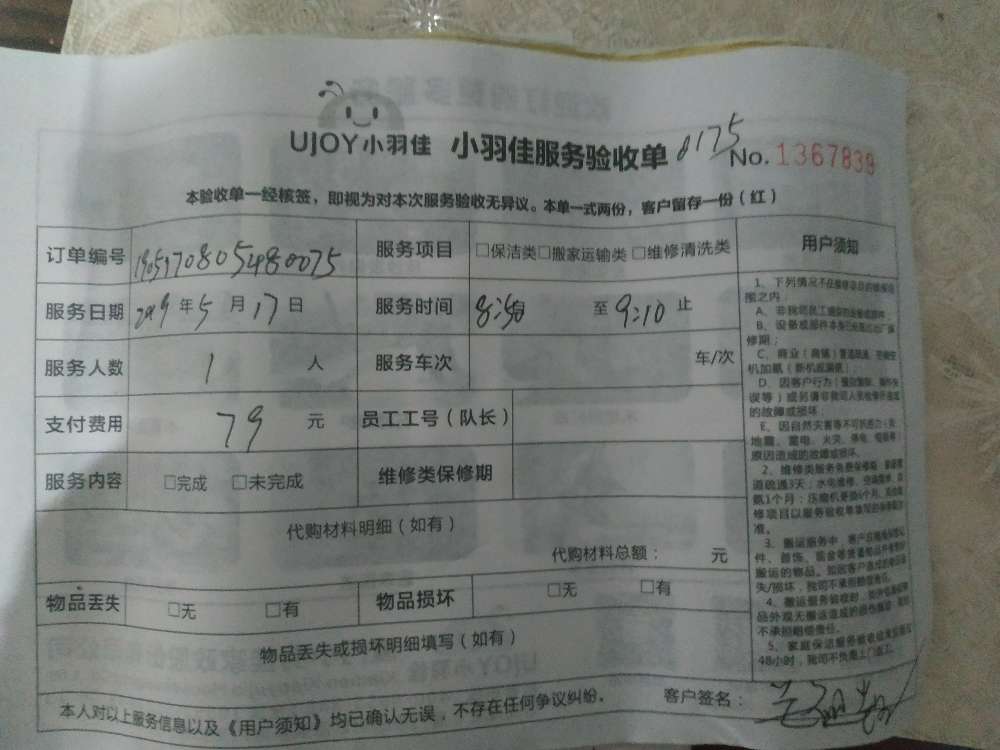 UJOY小羽佳 小羽佳服务验收单 0175 No. 1367839
本验收单一经核签，即视为对本次服务验收无异议。本单一式两份，客户留存一份（红）
订单编号 服务项目 □保洁类□搬家运输类 □维修清洗类
服务日期 2019 年 5 月 17 日 服务时间 至 9:10 止
服务人数 1 人 服务车次 车/次
支付费用 79 元 员工工号（队长）
服务内容 □完成 □未完成 维修类保修期
代购材料明细（如有）
代购材料总额： 元
物品丢失 □无 □有 物品损坏 □无 □有
物品丢失或损坏明细填写（如有）
本人对以上服务信息以及《用户须知》均已确认无误，不存在任何争议纠纷。 客户签名：
用户须知
1、下列情况不在
围之内：
A、非我司员工
B、设备或部件本身
修期；
C、商业（商铺）管道疏通、
机加氟（新机或漏氟）
D、因客户行为
误等）或另请非我司人员检修所造成
的故障或损坏；
E、因自然灾害等不可抗力
地震、雷电、火灾、停电、
原因造成的故障或损坏。
2、维修类服务免费保修期：
道疏通3天；水电维修、
氨1个月；压缩机更换6个月，
修项目以服务验收单填写的
准。
3、搬运服务中，客户应
件、首饰、现金等贵重物品
搬运的物品。如因客户造成的
失/损坏，我司不承担赔偿责任。
4、搬运服务验收时，
品外观无搬运造成的损伤
不承担赔偿责任。
5、家庭保洁服务验收结束后超过
48小时，我司不负责上门返工。